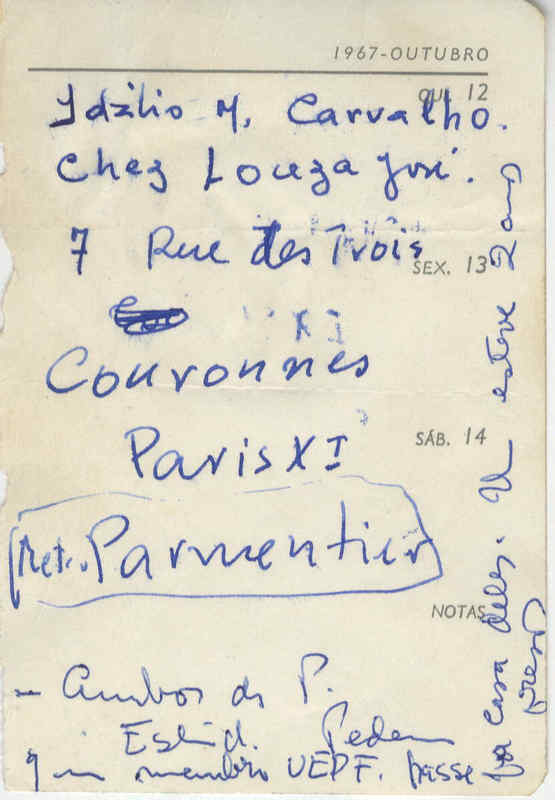 1967-OUTUBRO
QUI. 12
Idílio M. Carvalho.
Chez Louza José.
7 Rue des Trois
SEX. 13
Couronnes
SÁB. 14
Paris XI
Metr. Parmentier
NOTAS
- Ambos da P.
Pedem
q um membro UEPF. passe
pra casa deles. U esteve 2 anos
preso